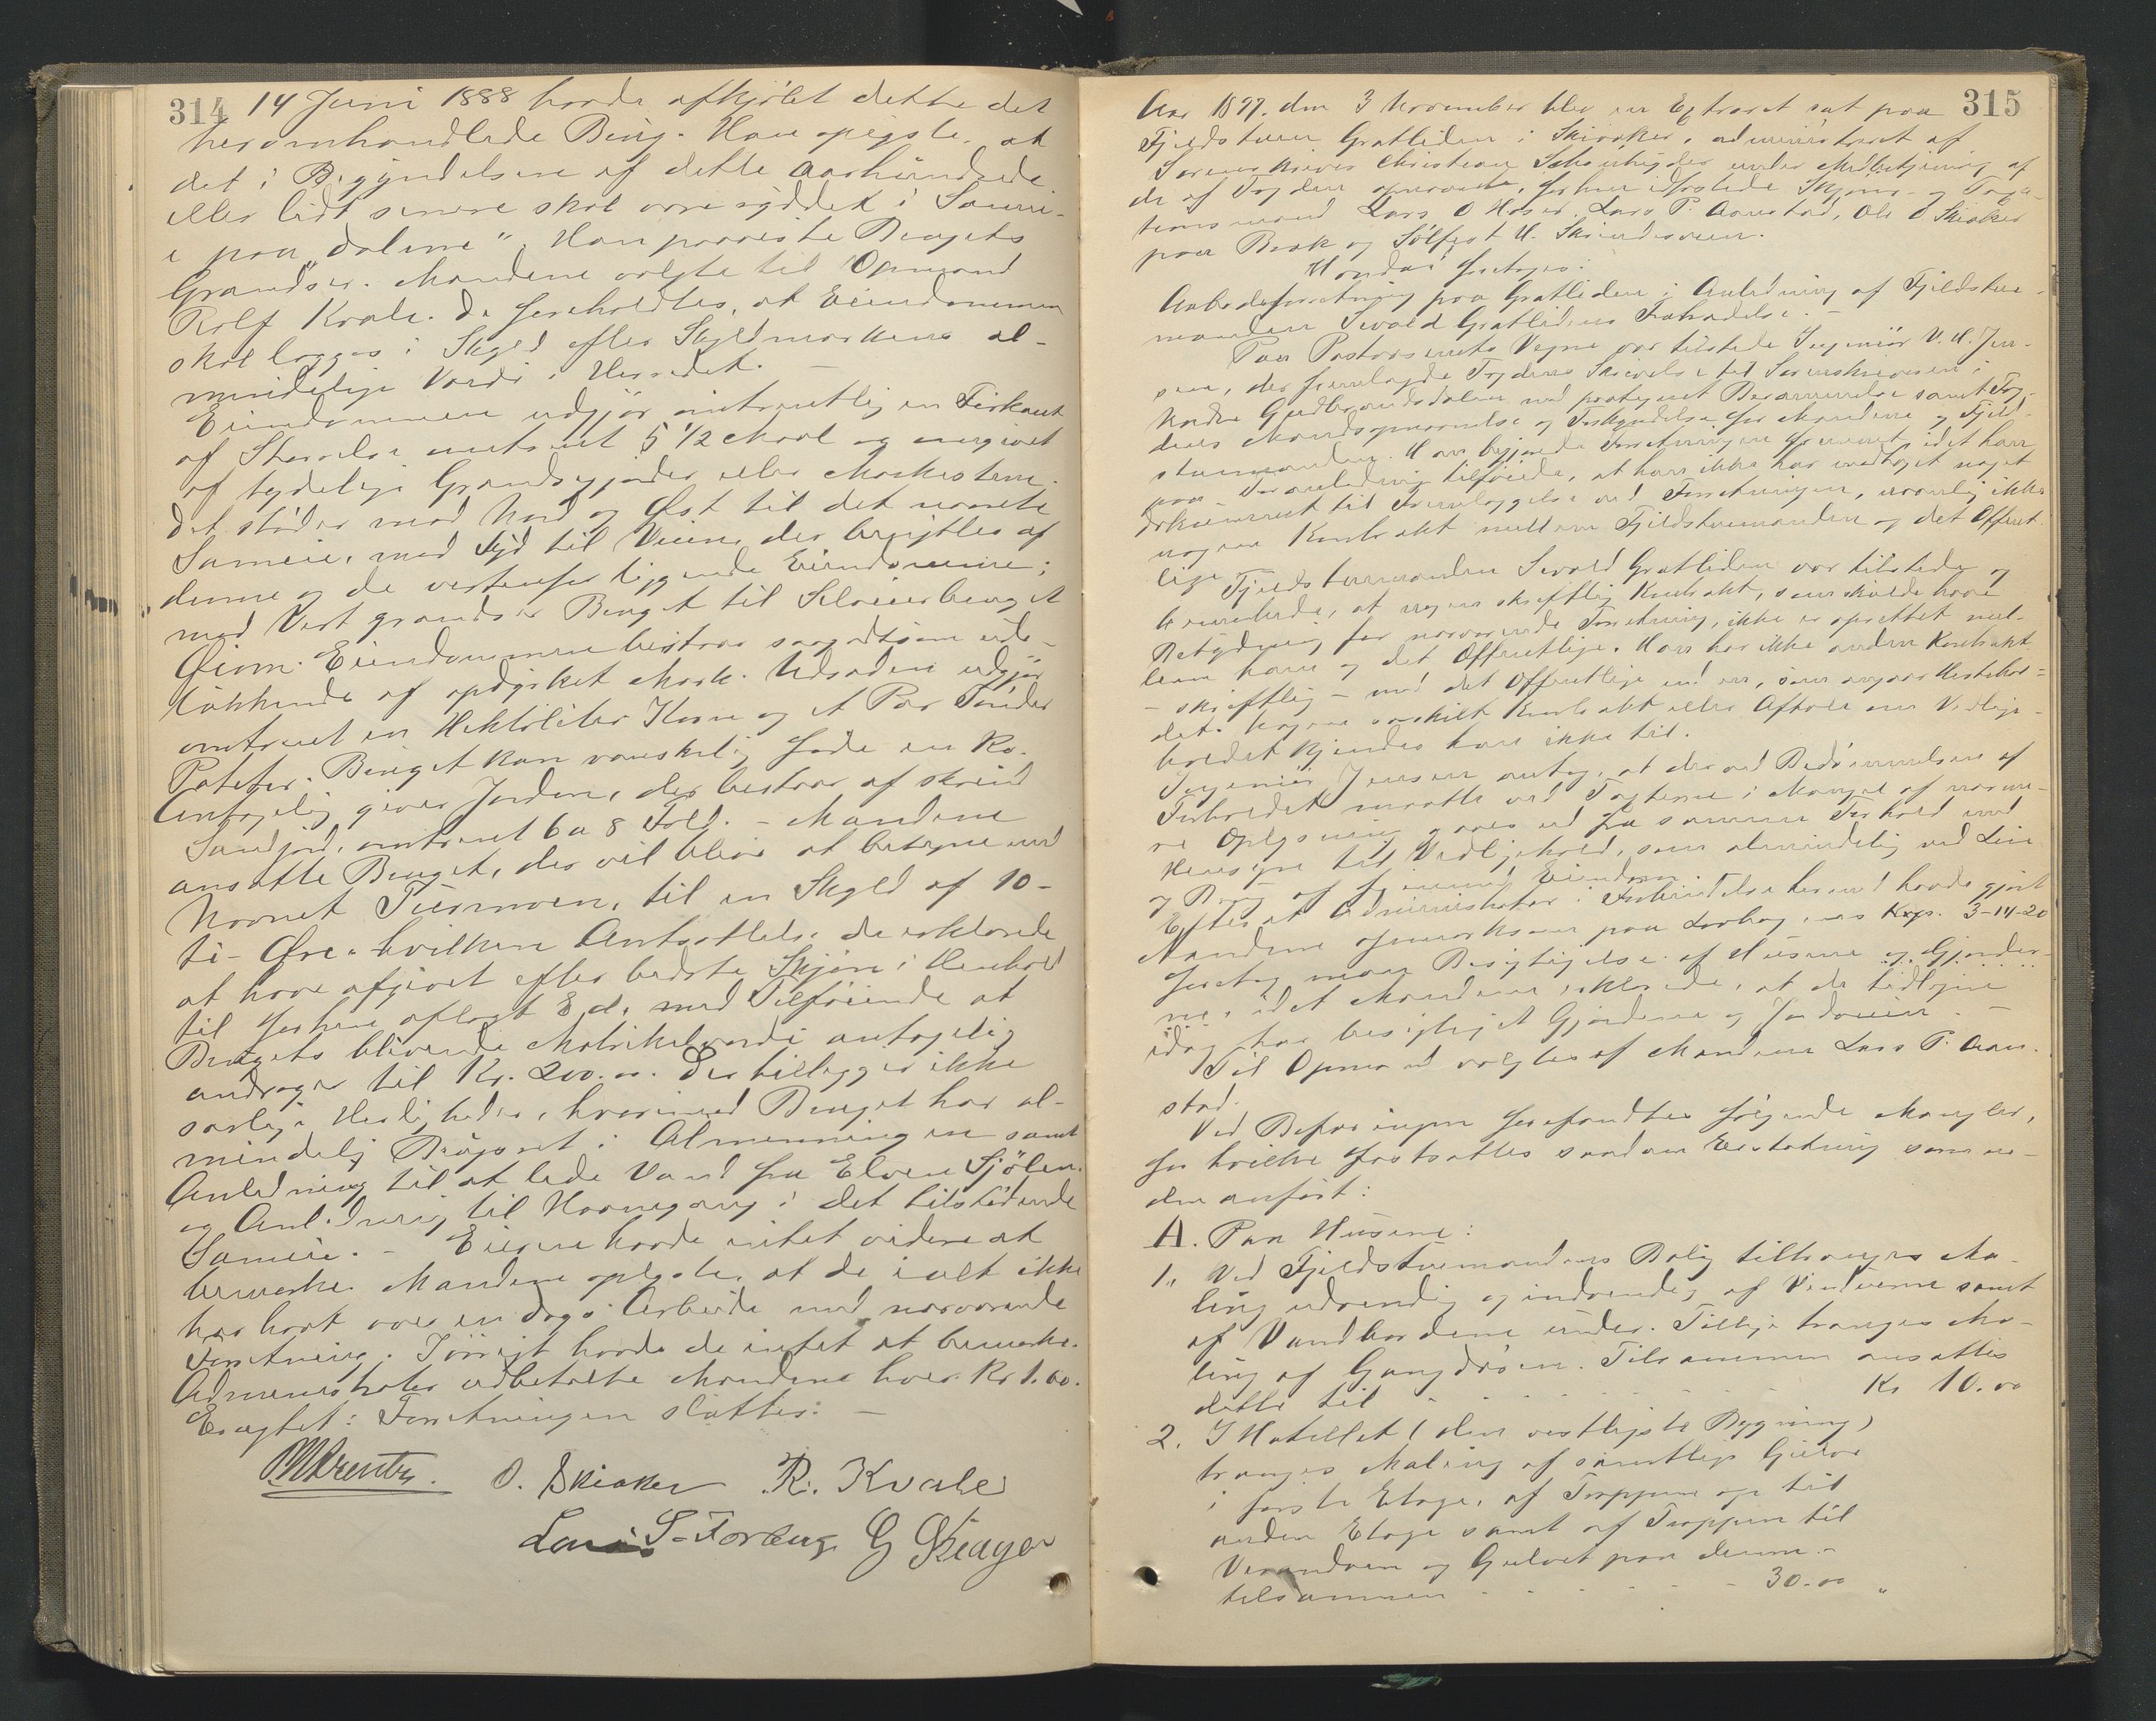 314
14 Juni 1888 havde afkjøbt dette det
heromhandlede Brug. Han opgiste, at
det i Begyndelsen af dette Aarhundrede
eller lidt senere skal være ryddet i Samei-
e paa "Dalene". Han paaviste Brugets
Grændser. Mændene valgte til Opmand
Rolf Kvale. De foreholdtes, at Eiendommen
skal lægges i Skyld efter Skyldmarkens al-
mindelige Værdi i Herredet. —
Eiendommen udgjør omtrentlig en Firkant
af Størrelse omtrent 5 1/2 Maal og omgivet
af tydelige Grændsegjerder eller Markestene.
Det støder mod Nord og Øst til det nævnte
Sameie, mod Syd til Veien, der benyttes af
denne og de vestenfor liggende Eiendomme;
med Vest grændser Bruget til Kleiverbruget
Øiom. Eiendommen bestaar saagodtsom ude-
lukkende af opdyrket Mark. Udsæden udgjør
omtrent en Hektoliter Korn og et Par Tønder
Poteter. Bruget kan vanskelig føde en Ko.
Antagelig giver Jorden, der bestaar af skrind
Sandjord, omtrent 6 a 8 Fold. - Mændene
ansatte Bruget, der vil blive at betegne med
Navnet Tuermoen, til en Skyld af 10 -
ti - Øre, hvilken Ansættelse de erklærede
at have afgivet efter bedste Skjøn i Henhold
til forhen aflagt Ed, med Tilføiende at
Brugets blivende Matrikelværdi antagelig
andrager til Kr. 200.00. Der tilligger ikke
særlige Herligheder, hvorimod Bruget har al-
mindelig Brugsret i Almenningen samt
Anledning til at lede Vand fra Elven Sjølen
og Anledning til Havnegang i det tilstødende
Sameie. - Eieren havde intet videre at
bemærke. Mændene oplyste, at de ialt ikke
har havt over en Dags Arbeide med nærværende
Forretning. Iøvrigt havde de intet at bemærke.
Administrator udbetalte Mændene hver Kr 1.60.
Eragtet: Forretningen sluttes. —
O. Skiaker R. Kvale
Lars S. Forberg G Skeager
315
Aar 1897 den 3 November blev en Extraret sat paa
Fjeldstuen Grotliden i Skiaker, administreret af
Sorenskriver Christian Schønheyder under Medbetjening af
de af Fogden opnævnte, forhen edfæstede Skjøns- og Taxa-
tionsmænd Lars O Hosar, Lars P. Aanstad, Ole O Skiaker
paa Bræk og Sølfest H. Skiendsveen.
Hvorda foretoges:
Aabodsforretning paa Grotliden i Anledning af Fjeldstue-
manden Sivald Grotlidens Fratrædelse. -
Paa Postvæsenets Vegne var tilstede Ingeniør V. H. Jen-
sen, der fremlagde Fogdens Skrivelse til Sorenskriveren i
Nordre Gudbrandsdalen med paategnet Berammelse samt Fog-
dens Mandsopnævnelse og Forkyndelse for Mændene og Fjeld-
stuemanden. Han begjærede Forretningen fremmet, idet han
paa Foranledning tilføiede, at han ikke har modtaget noget
Dokument til Fremlæggelse ved Forretningen, navnlig ikke
nogen Kontrakt mellem Fjeldstuemanden og det Offent-
lige
Fjeldstuemanden Sivald Grotliden var tilstede og
bemærkede, at nogen skriftlig Kontrakt, som skulde have
Betydning for nærværende Forretning, ikke er oprettet mel-
lem ham og det Offentlige. Han har ikke anden Kontrakt
- skriftlig - med det Offentlige end en, som angaar Hestehol-
det. Nogen særskilt Kontrakt eller Aftale om Vedlige-
holdet kjender han ikke til.
Ingeniør Jensen antog, at der ved Bedømmelsen af
Forholdet maatte ved Taxterne i Mangel af nærme-
re Oplysning gaaes ud fra samme Forhold med
Hensyn til Vedligehold, som almindelig ved Leie
og Brug af fremmed Eiendom.
Efter at Administrator i Forbindelse hermed havde gjort
Mændene opmærksom paa Lovbogens Kap. 3-14-20
foretog man Besigtigelse af Husene og Gjerder-
ne, idet Mændene erklærede, at de tidligere
idag har besigtiget Gjerderne og Jordveien. -
Til Opmand valgtes af Mændene Lars P. Aan-
stad.
Ved Befaringen forefandtes følgende Mangler,
for hvilke fastsattes saadan Erstatning som ne-
den anført:
A. Paa Husene:
1. Ved Fjeldstuemandens Bolig tiltrænges Ma-
ling udvendig og indvendig af Vinduerne samt
af Vandbordene under. Tillige trænges Ma-
ling af Gangdøren. Tilsammen ansattes
dette til - - - - - - Kr 10.00
2. I Hotellet (den vestligste Bygning)
trænges Maling af samtlige Gulve
i første Etage, af Trappen op til
anden Etage samt af Trappen til
Verandaen og Gulvet paa denne -
tilsammen - - - - - - 30.00 "